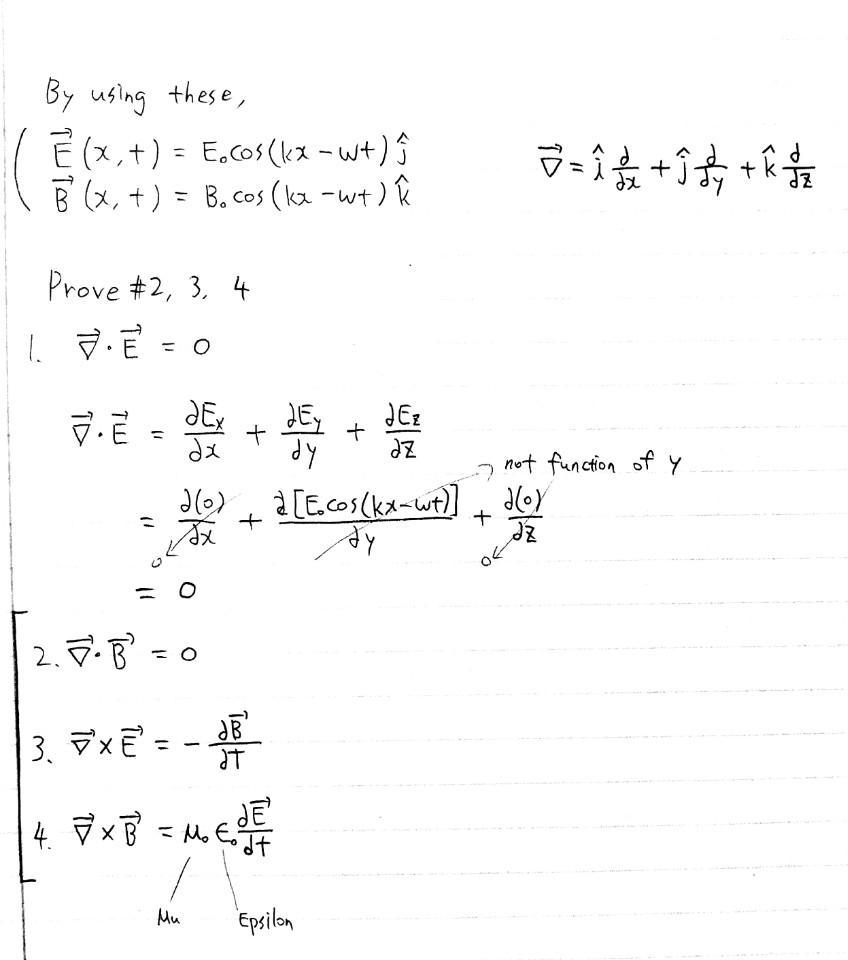 By using these,
E⃗ (x, t) = E₀cos(kx − wt) ĵ
B⃗ (x, t) = B₀ cos (kx − wt) k̂
∇⃗ = î ∂/∂x + ĵ ∂/∂y + k̂ ∂/∂z
Prove #2, 3, 4
1. ∇⃗ · E⃗ = 0
∇⃗ · E⃗ = ∂Ex/∂x + ∂Ey/∂y + ∂Ez/∂z
not function of y
= ∂(0)/∂x + ∂[E₀cos(kx−wt)]/∂y + ∂(0)/∂z
0 0
= 0
2. ∇⃗ · B⃗ = 0
3. ∇⃗ × E⃗ = − ∂B⃗/∂T
4. ∇⃗ × B⃗ = μ₀ ϵ₀ ∂E⃗/∂t
Mu Epsilon